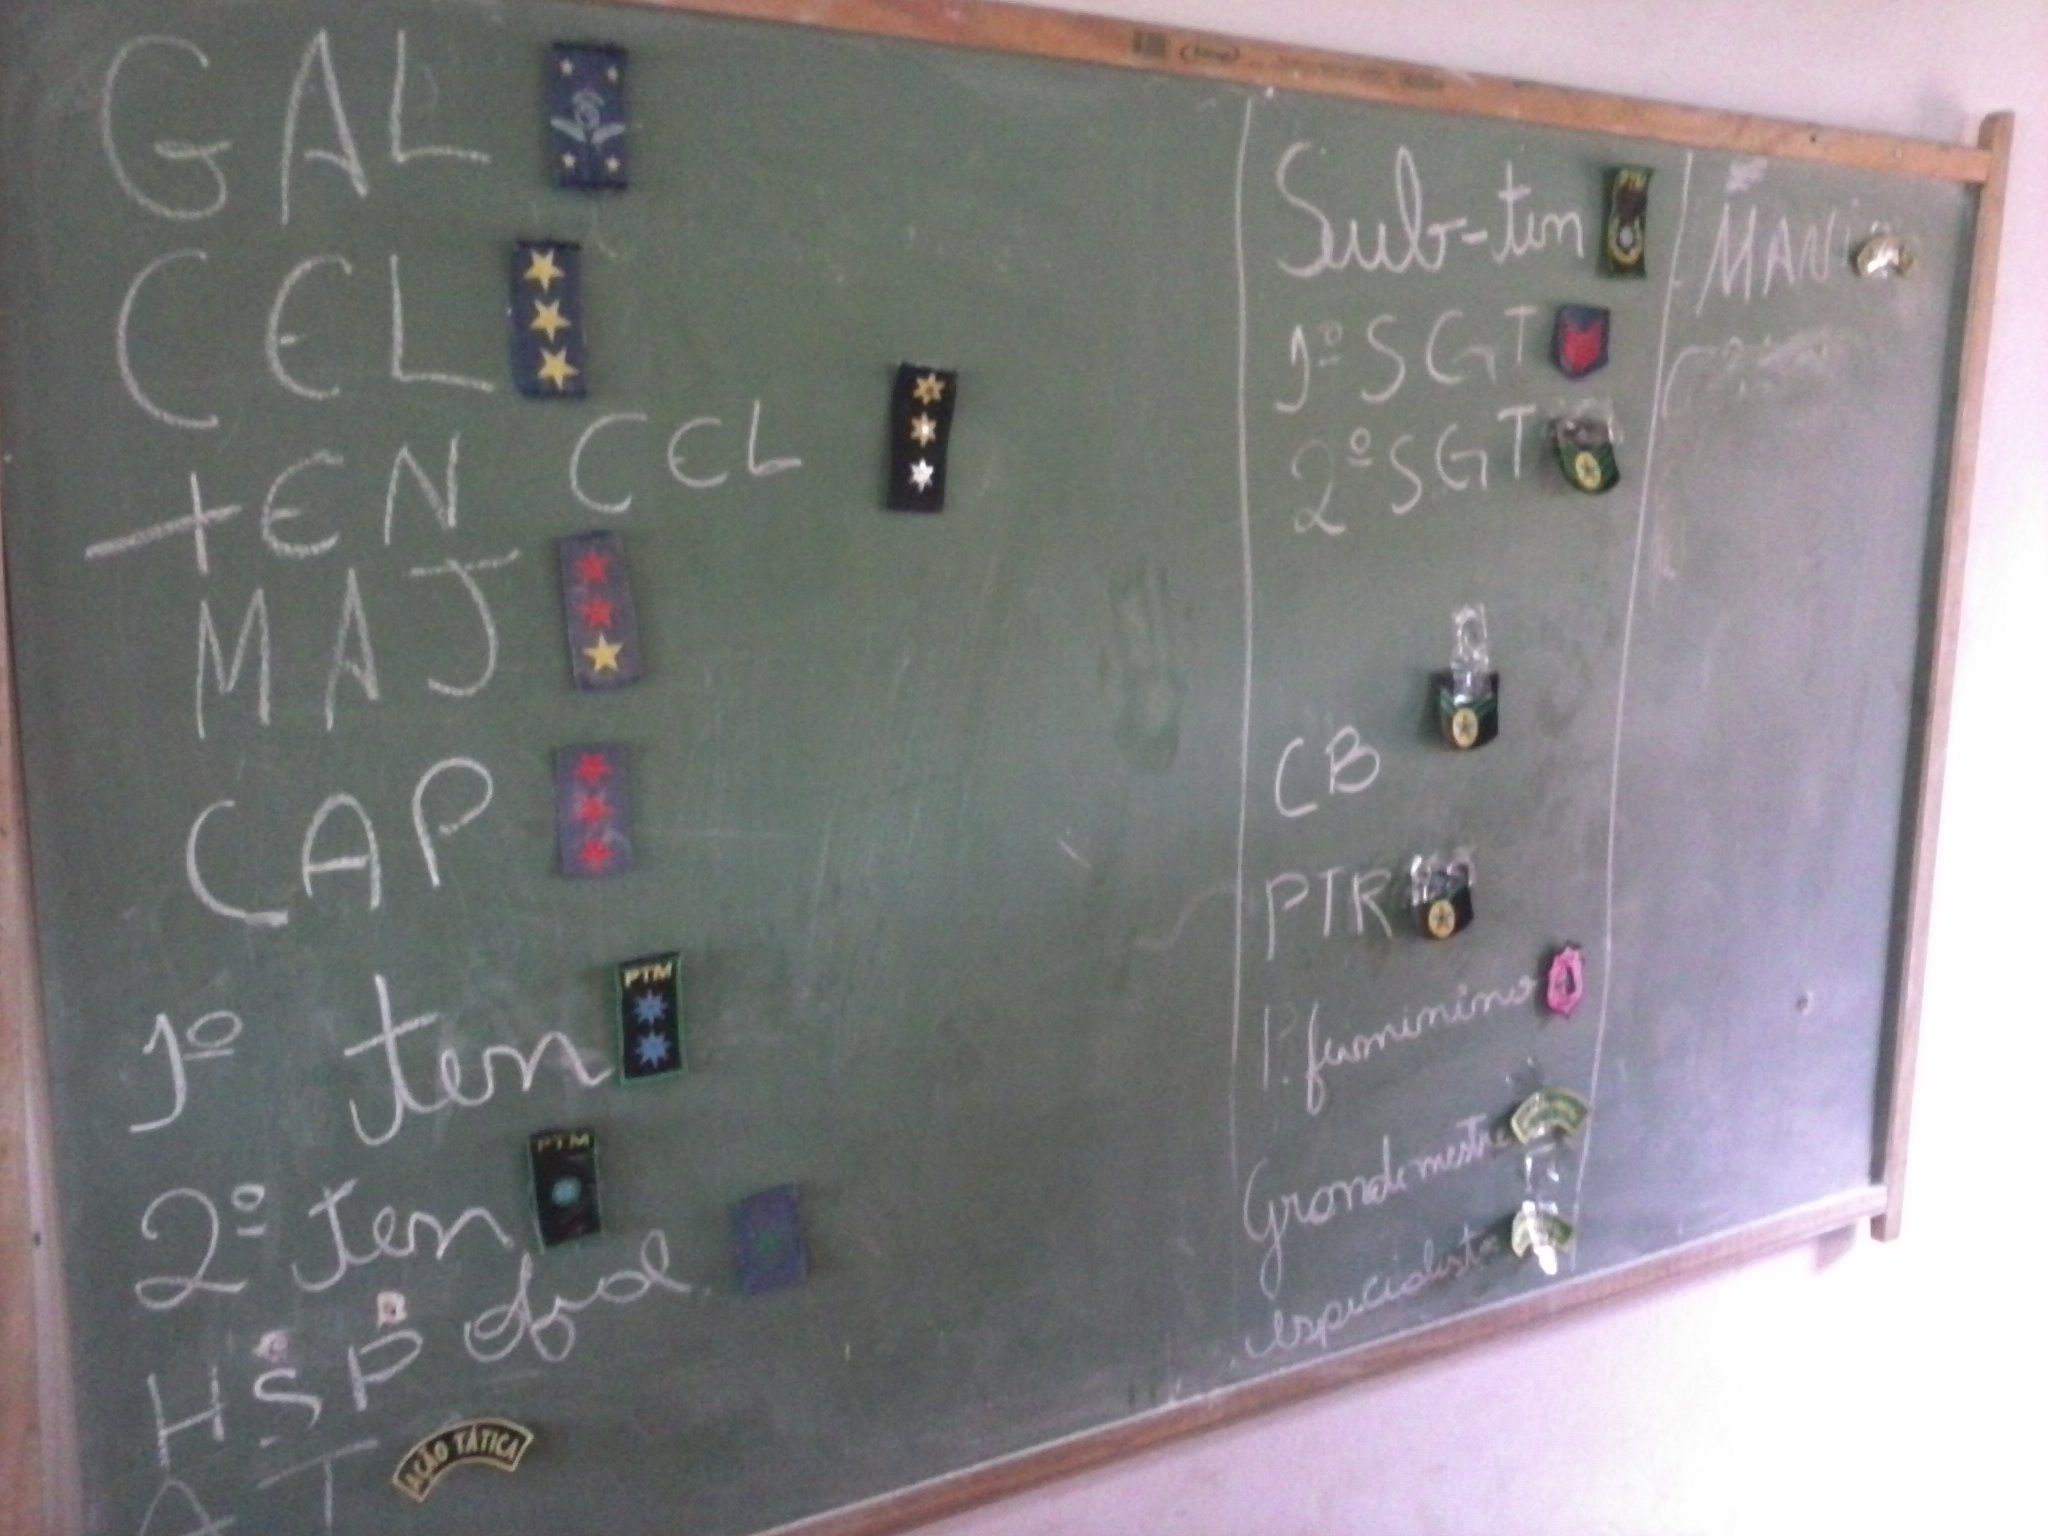 GAL
CEL
TEN CEL
MAJ
CAP
1º ten
PTM
2º ten
PTM
HSP
AT
AÇÃO TÁTICA
Sub-ten
PTM
1º SGT
2º SGT
CB
PTR
P. fuminino
Grande mestre
especialista
MAN